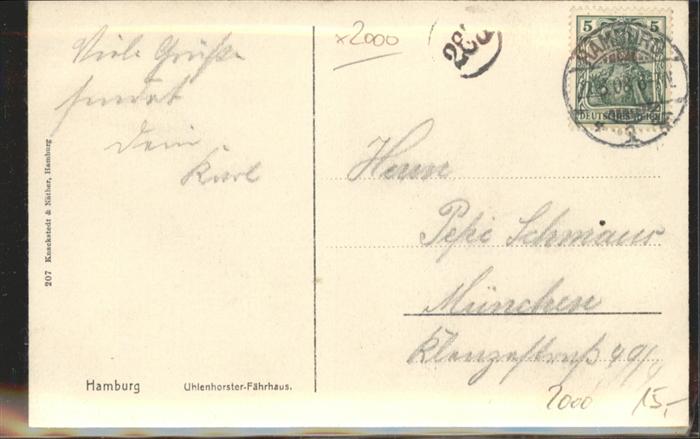 Viele Grüße
sendet
Dein
Karl
x2000
5 5
HAMBURG
DEUTSCHES REICH
1
Herrn
Pepi Schmaus
München
Klenzestraß 49/
207 Knackstedt & Näther, Hamburg
Hamburg Uhlenhorster-Fährhaus.
2000 15,-